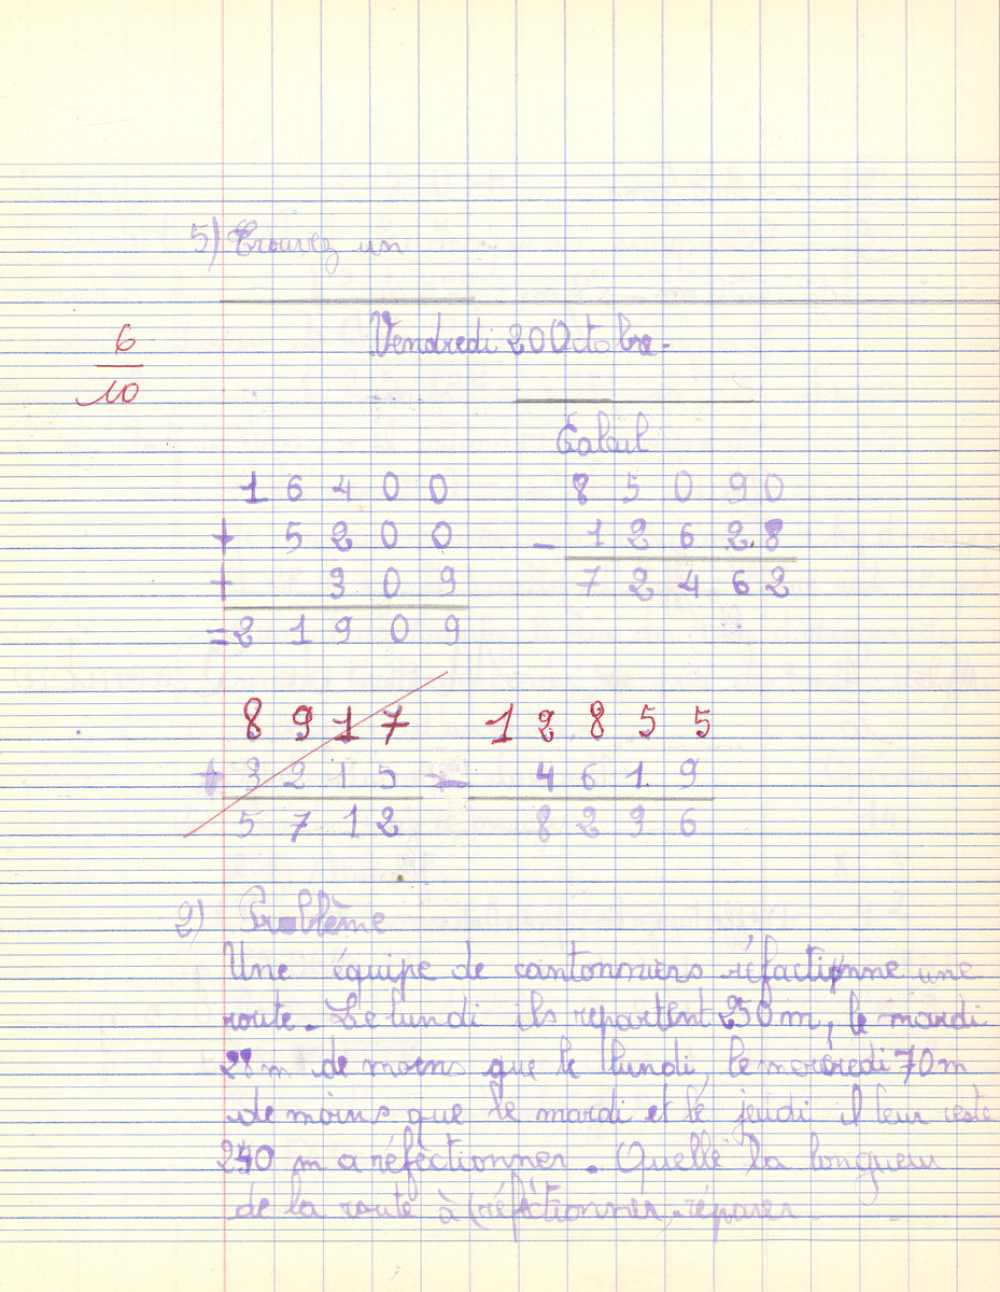 5) Trouvez un
Vendredi 20 Octobre.
6
10
Calcul
1 6 4 0 0
+ 5 2 0 0
+ 3 0 9
= 2 1 9 0 9
8 5 0 9 0
- 1 2 6 2 8
7 2 4 6 2
8 9 1 7
+ 3 2 1 5
5 7 1 2
1 2 8 5 5
- 4 6 1 9
8 2 3 6
2) Problème
Une équipe de cantonniers réfactionne une
route. Le lundi ils repartent 250 m, le mardi
28 m de moins que le lundi, le mercredi 70 m
de moins que le mardi et le jeudi il leur reste
240 m a réfectionner. Quelle la longueur
de la route à (réfectionner, réparer